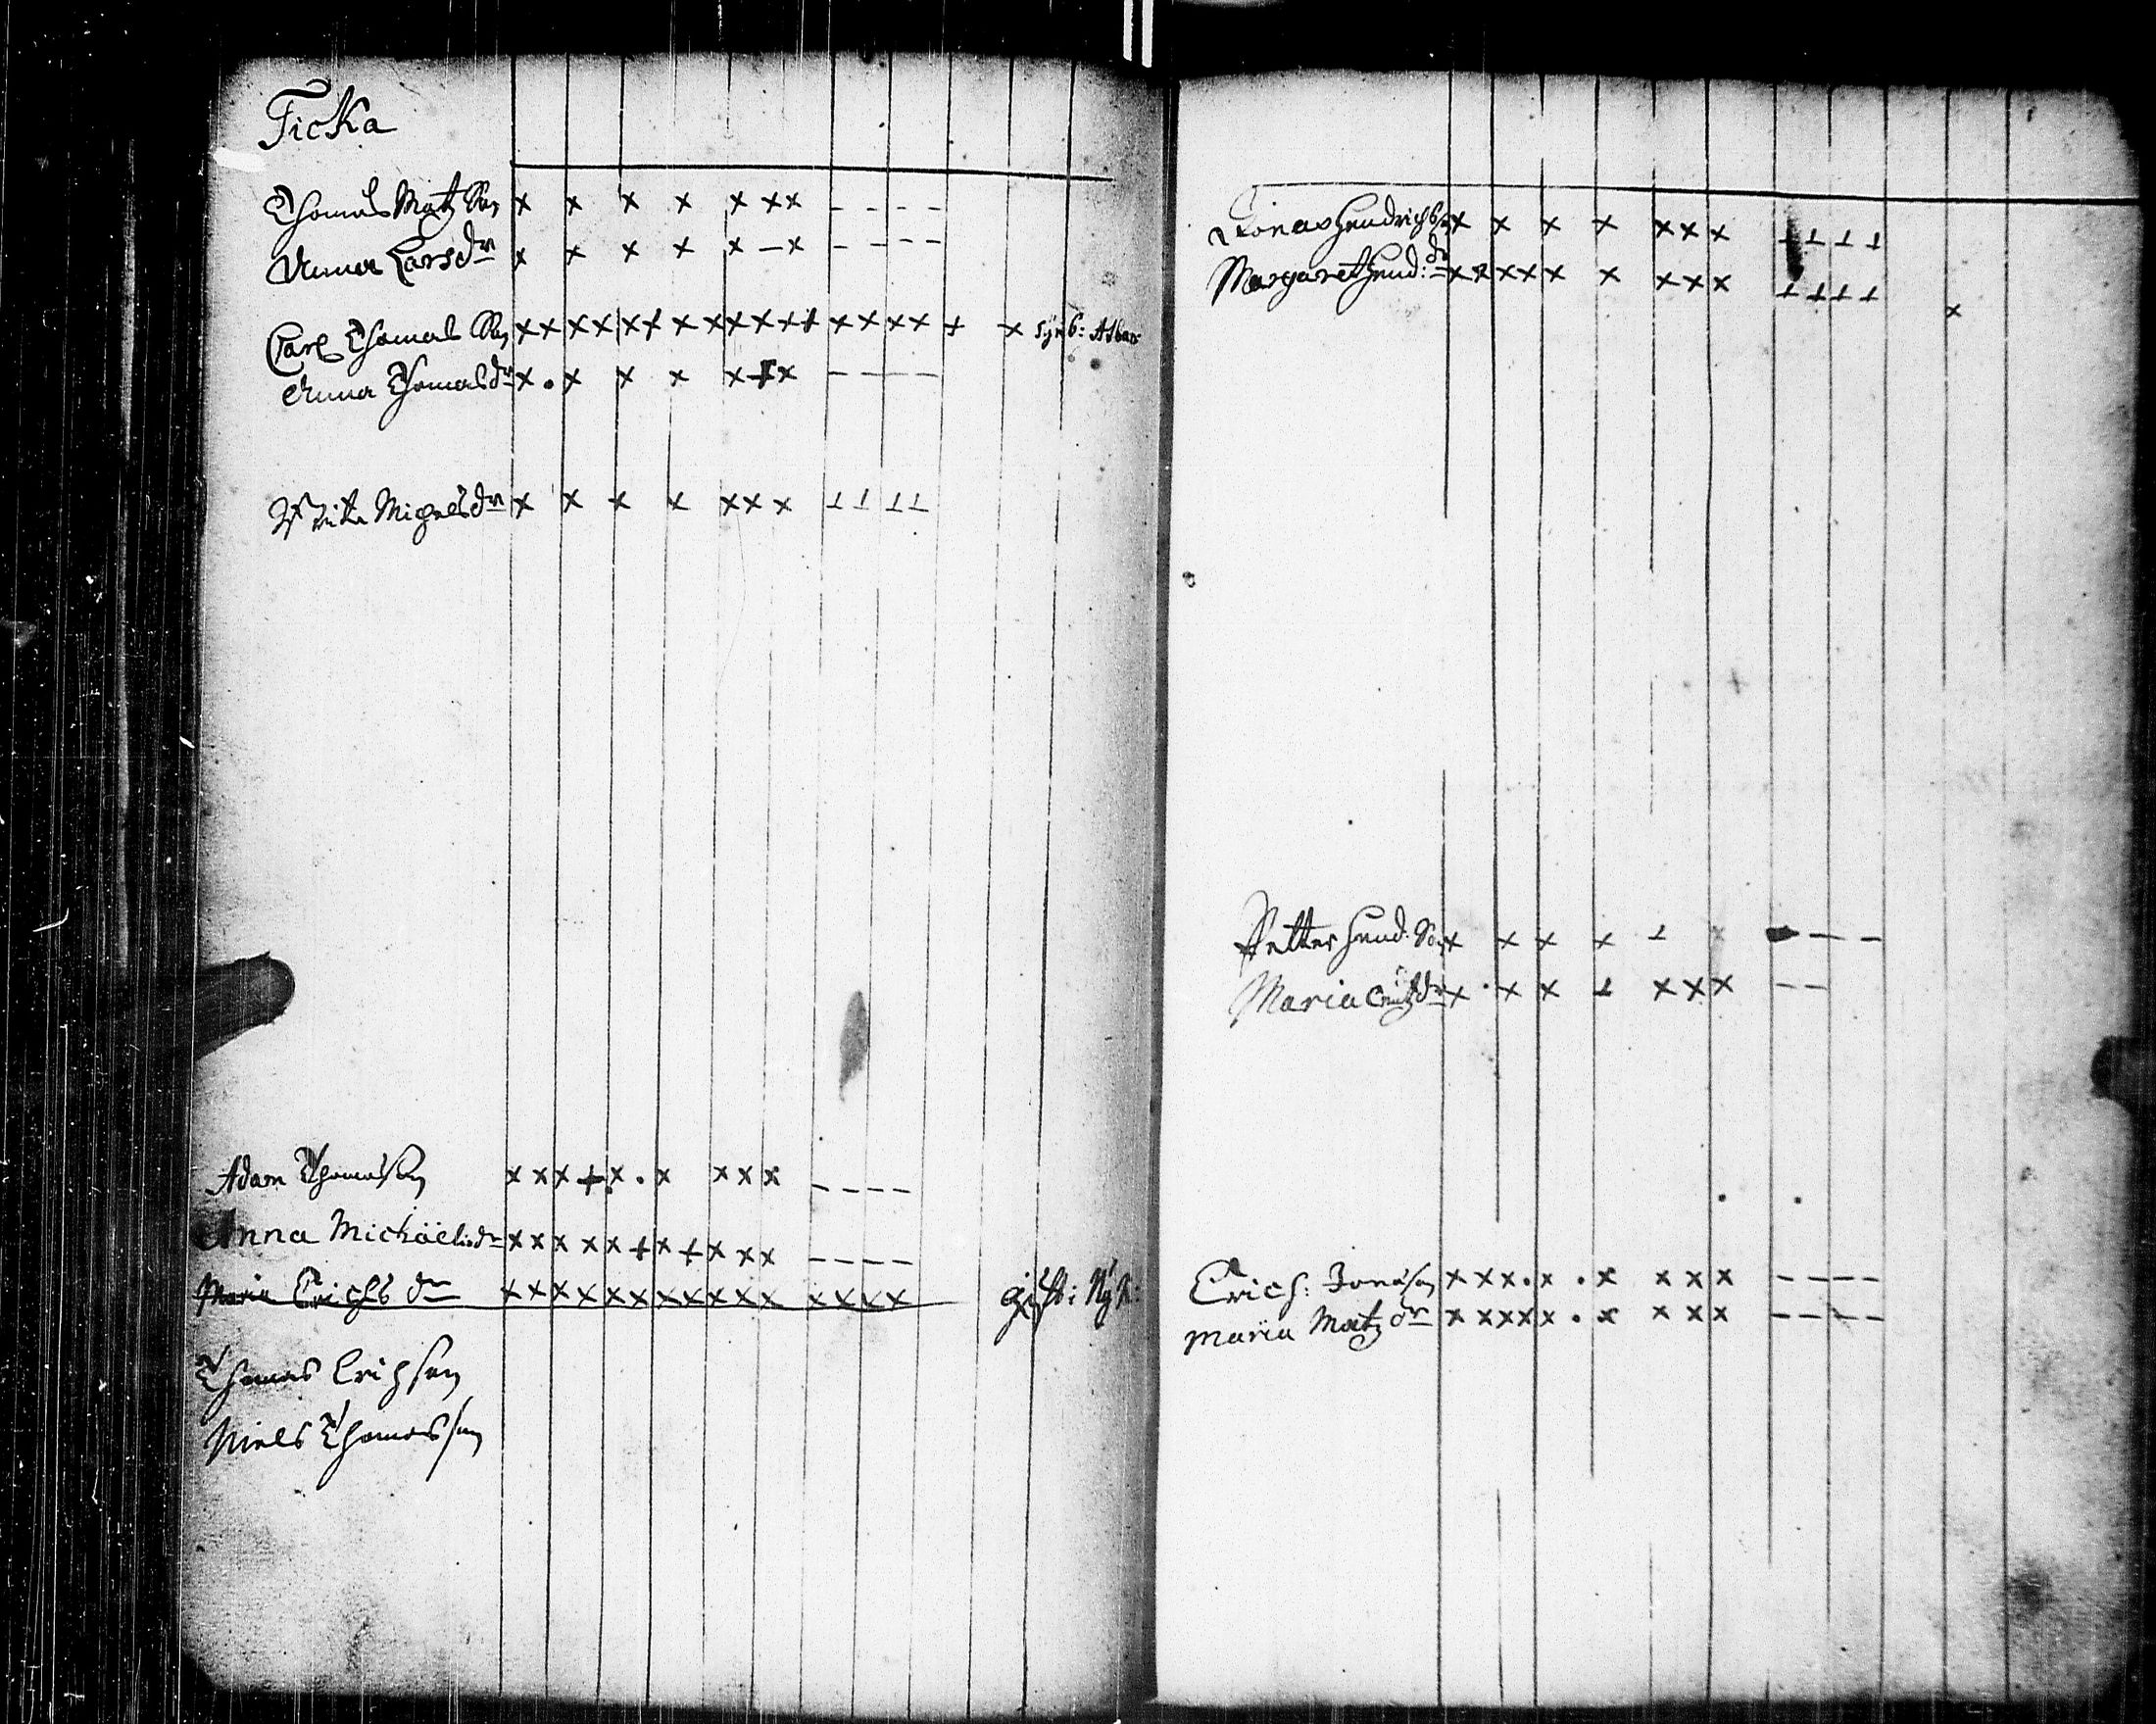 Ficka
Thomas Matz Son x x x x x x x - - - -
Anna Larsdr x x x x x - x - - - -
Carl Thomas Son x x x x x x x x x x x x x x x x + x
Anna Thomasdr x . x x x x + x - - - -
Mignelsdr x x x x x x x ⊥ ⊥ ⊥ ⊥
Adam Thomasson x x x + x . x x x x - - - -
Anna Michäelisdr x x x x x + x + x x x - - - -
Maria Erichs dr x x x x x x x x x x x x x x x gift: Nyk:
Thomas Erichson
Niels Thomasson
Jonas Hendrichs x x x x x x x ⊥ ⊥ ⊥ ⊥
Margaret Hend: dr x x x x x x x x x ⊥ ⊥ ⊥ ⊥ x
Petter Hend: Son x x x x ⊥ x - - -
Maria dr x . x x ⊥ x x x - -
Erich: Jonäson x x x . x . x x x x - - - -
Maria Matz dr x x x x x . x x x x - - - -